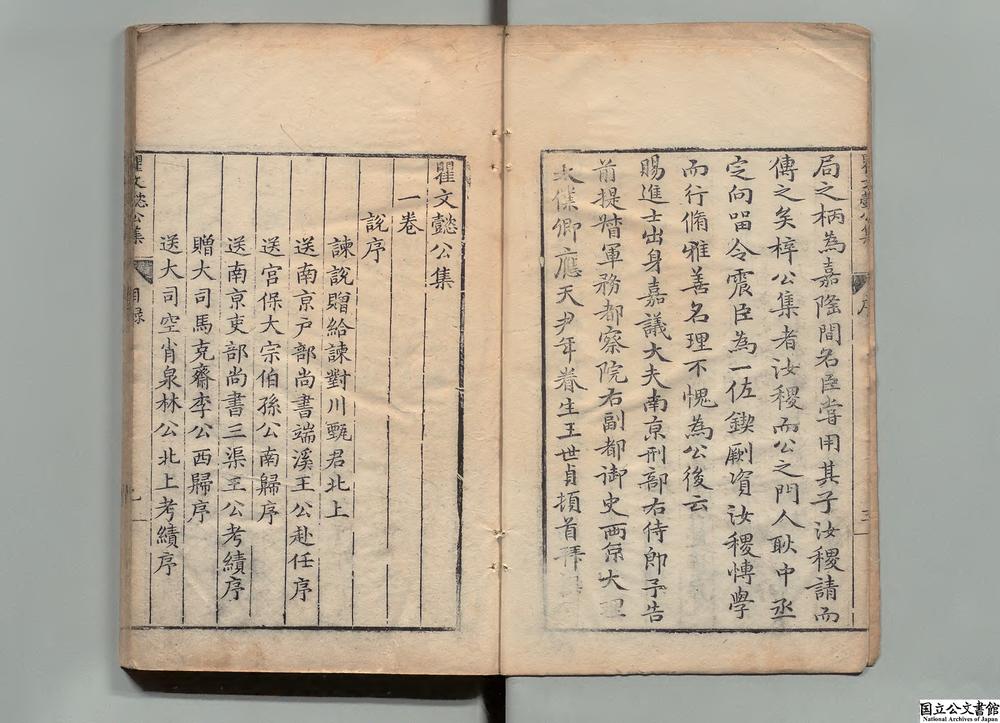 局之柄為嘉隆間名臣嘗用其子汝稷請而
傳之矣梓公集者汝稷而公之門人耿中丞
定向畱令震臣為一佐鍥劂資汝稷慱學
而行脩雅善名理不愧為公後云
賜進士出身嘉議大夫南京刑部右侍郎予告
前提督軍務都察院右副都御史兩京大理
太僕卿應天尹年眷生王世貞頓首拜
瞿文懿公集
序
三
瞿文懿公集
一卷
說序
諫說贈給諫對川甄君北上
送南京戶部尚書端溪王公赴任序
送宮保大宗伯孫公南歸序
送南京吏部尚書三渠王公考績序
贈大司馬克齋李公西歸序
送大司空肖泉林公北上考績序
瞿文懿公集
目錄
国立公文書館
National Archives of Japan